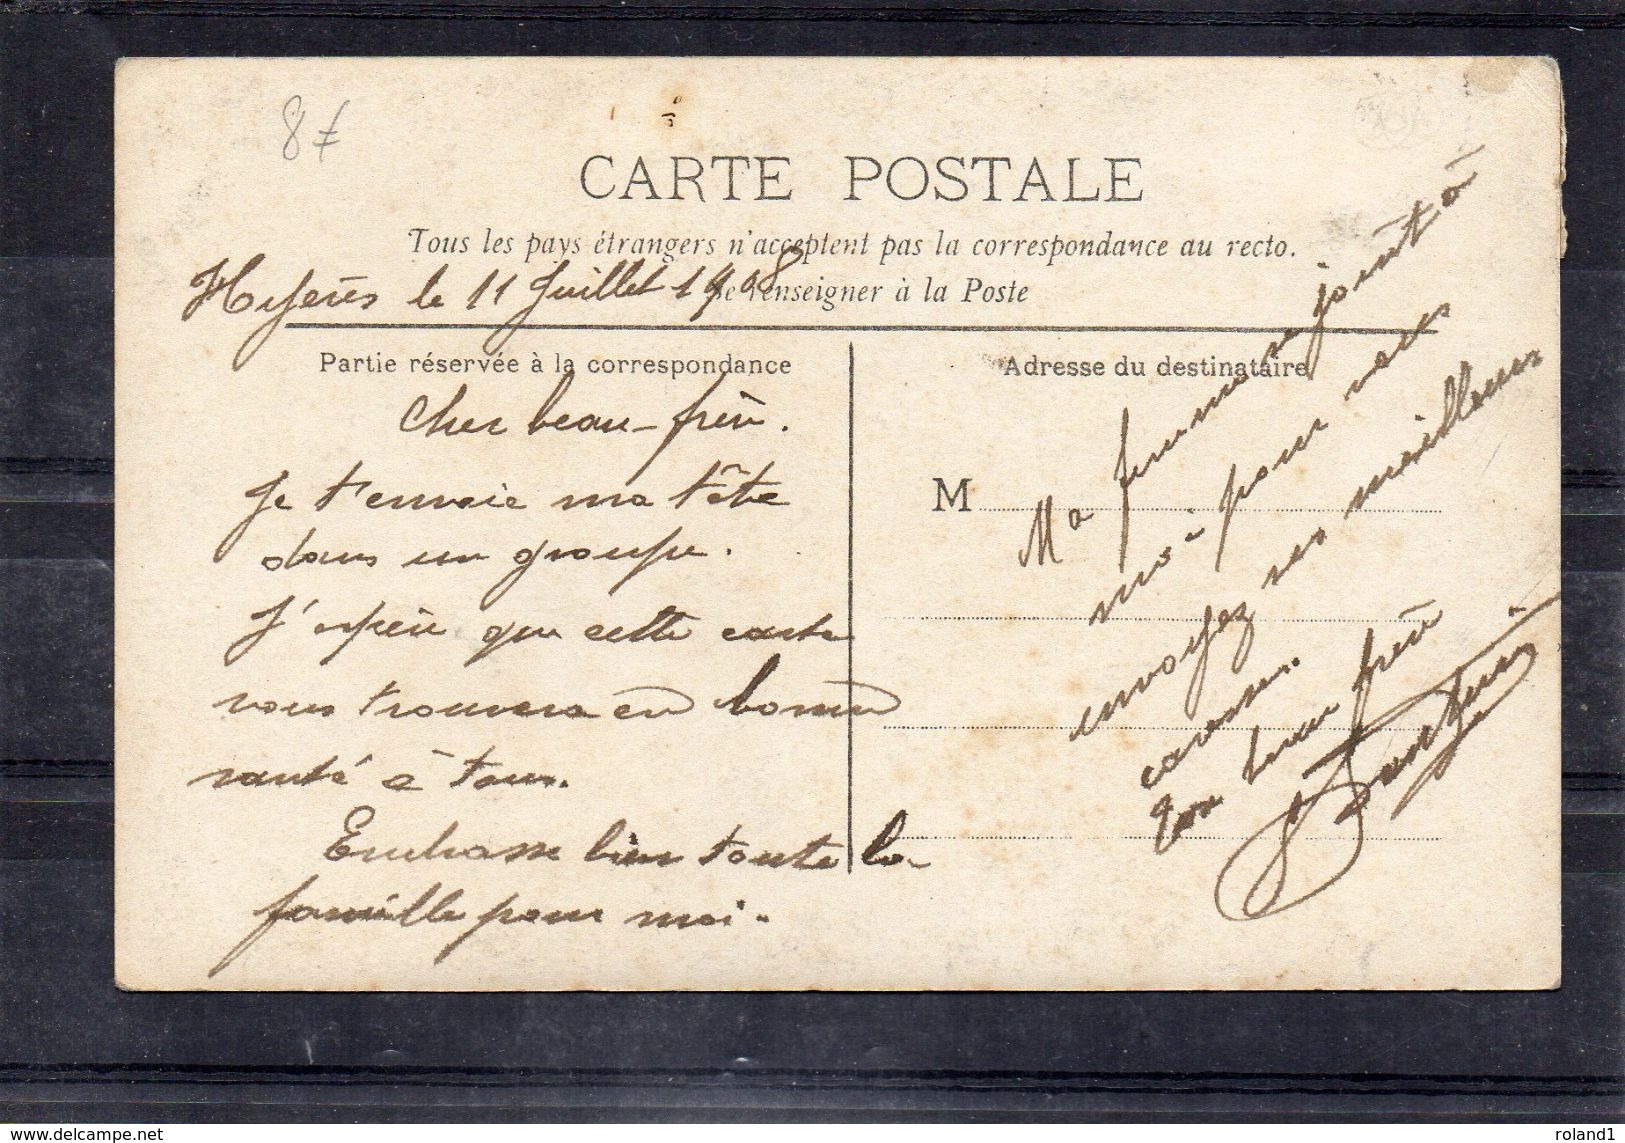 8f
CARTE POSTALE
Tous les pays étrangers n'acceptent pas la correspondance au recto.
Se renseigner à la Poste
Hyères le 11 Juillet 1908
Partie réservée à la correspondance
Adresse du destinataire
Cher beau-frère.
Je t'envoie ma tête
dans un groupe.
J'espère que cette carte
vous trouvera en bonne
santé à tous.
Embrasse bien toute la
famille pour moi.
M
Ma femme se joint à
moi pour vous
envoyez ses meilleurs
caresses.
Ton beau frère
delcampe.net
roland1